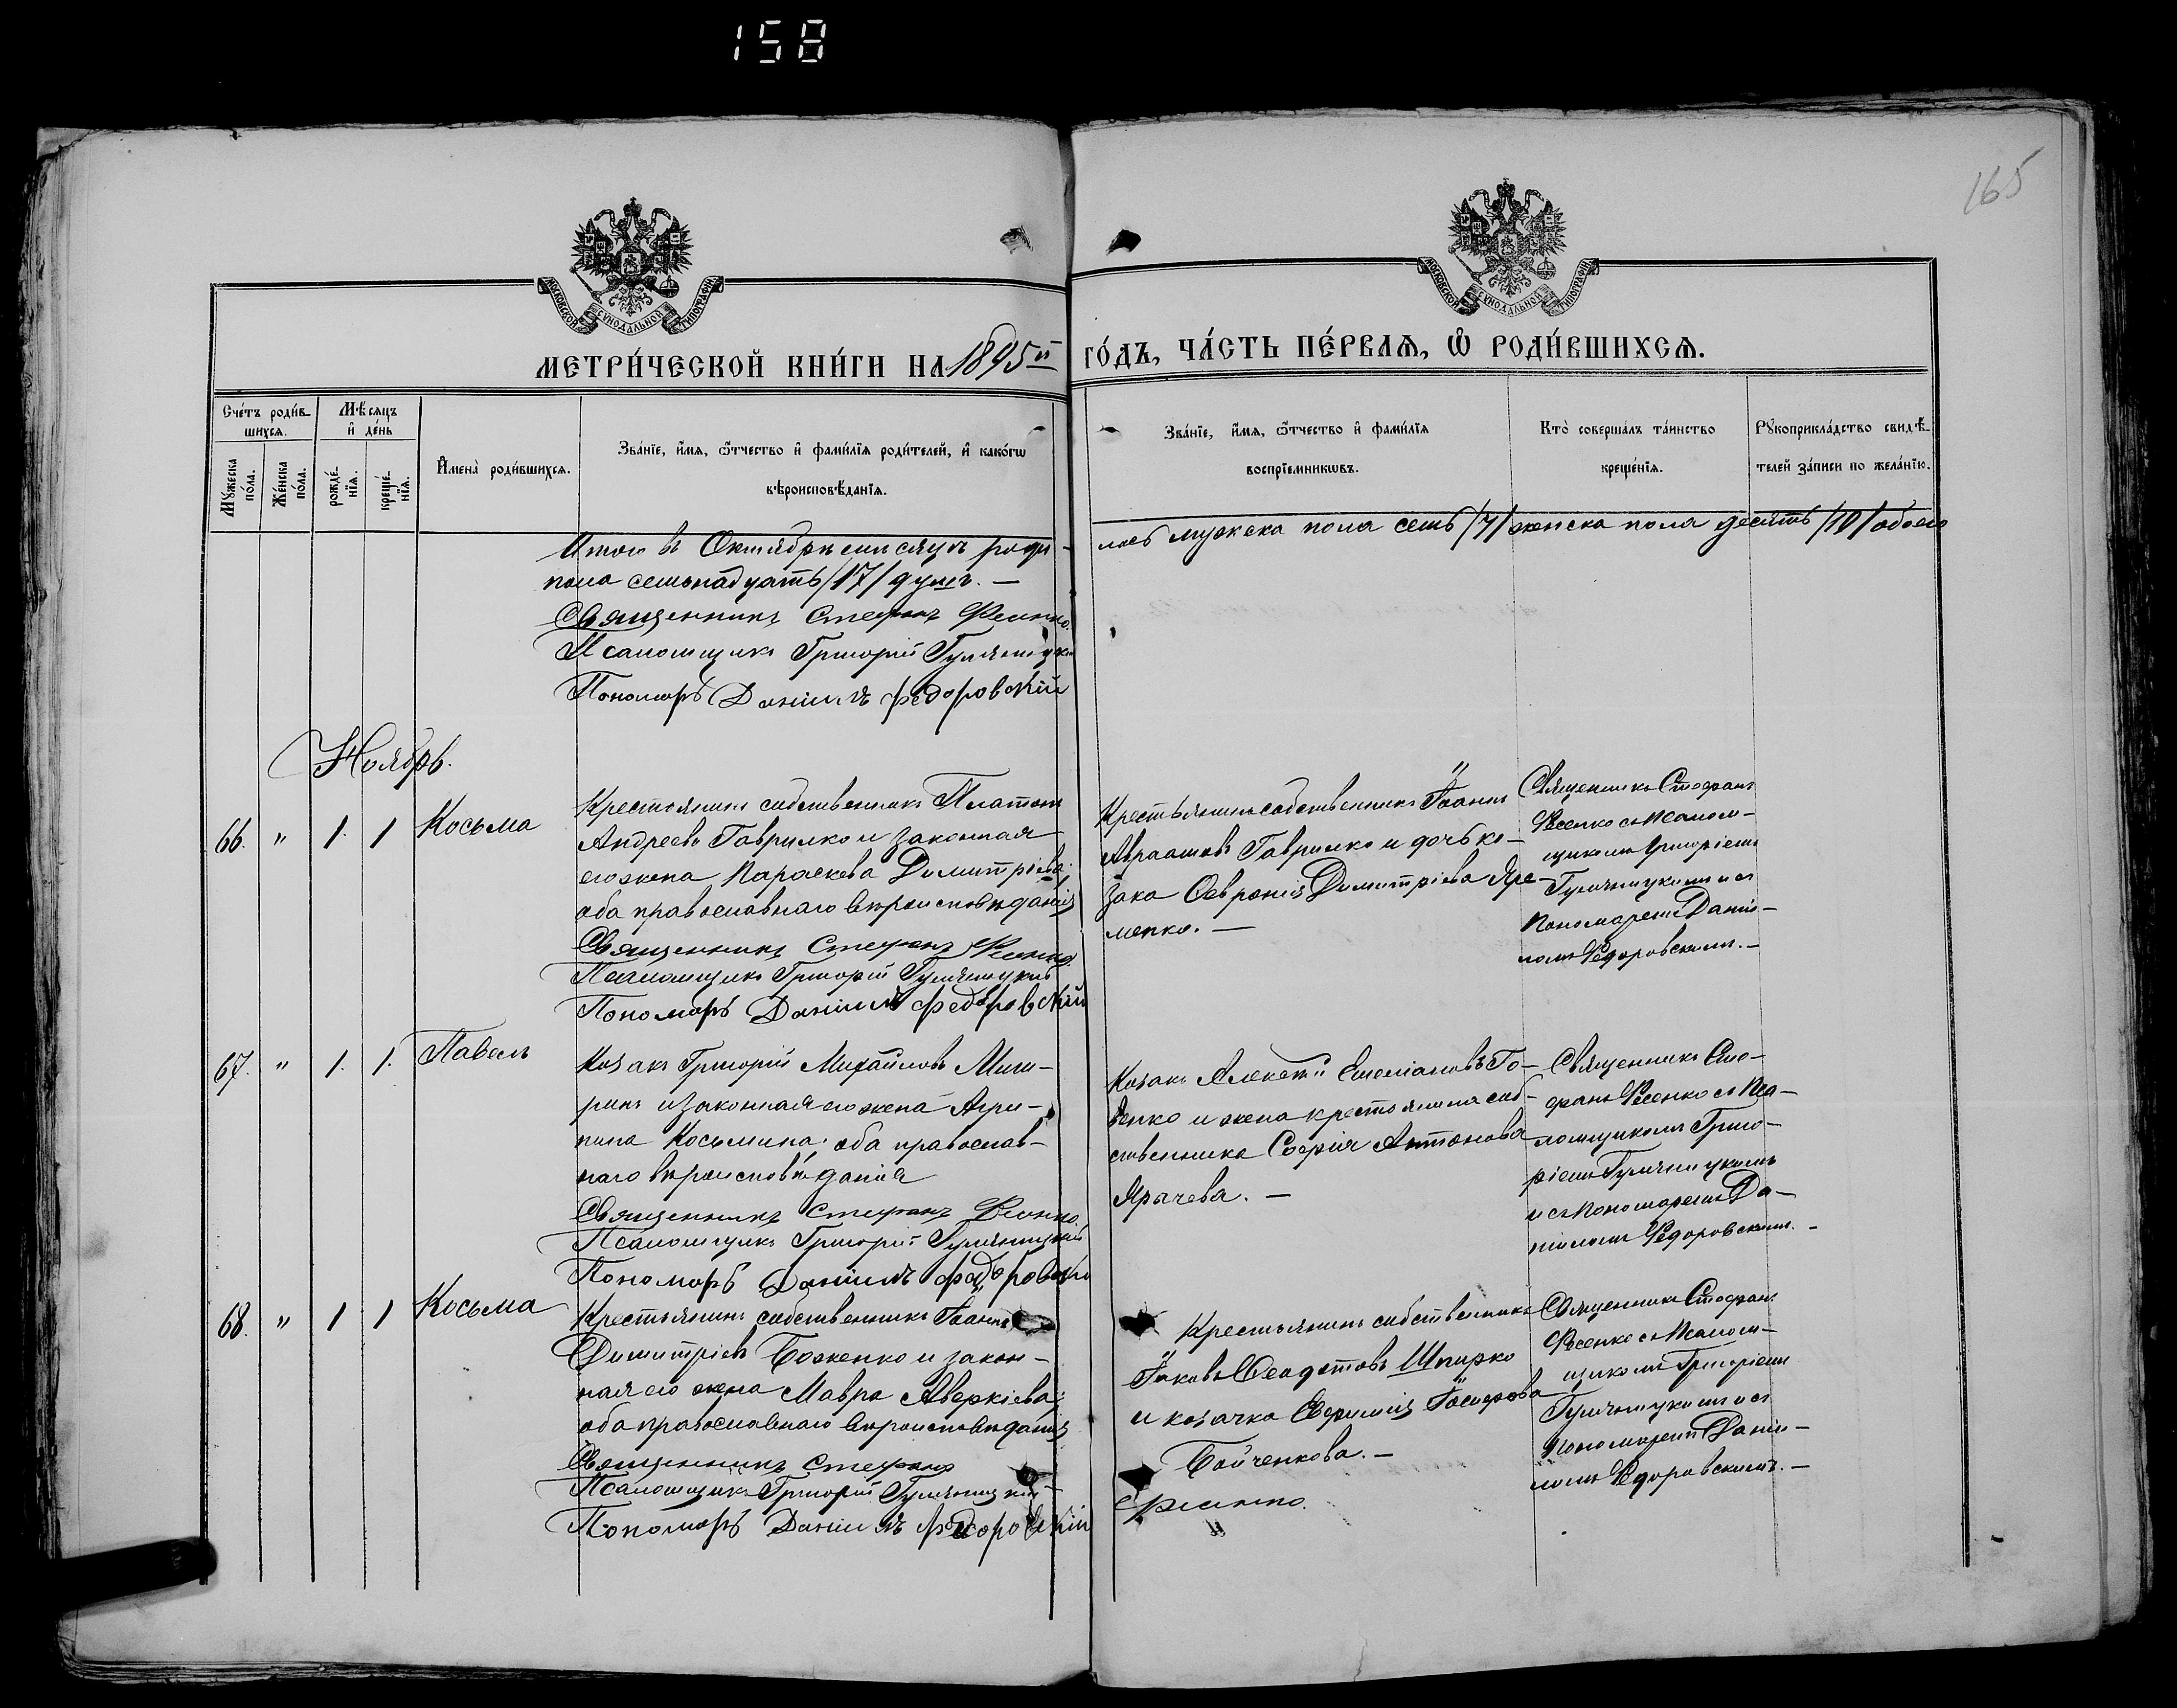 158
165
МОСКОВСКОЙ СѴНОДАЛЬНОЙ ТИПОГРАФІИ
МОСКОВСКОЙ СѴНОДАЛЬНОЙ ТИПОГРАФІИ
МЕТРИ́ЧЕСКОЙ КНИ́ГИ НА 1895й ГО́ДЪ, ЧА́СТЬ ПЕ́РВАѦ, Ѡ҆ РОДИ́ВШИХСѦ.
Сче́тъ роди́в-
шихсѧ.
Мѣ́сѧцъ
и҆ де́нь
Мꙋ́жеска
по́ла.
Же́нска
по́ла.
рожде́-
нїѧ.
креще́-
нїѧ.
И҆мена̀ роди́вшихсѧ.
Зва́нїе, и҆́мѧ, ѻ҆́тчество и҆ фамѝлїѧ роди́телей, и҆ како́гѡ
вѣроисповѣ́данїѧ.
Зва́нїе, и҆́мѧ, ѻ҆́тчество и҆ фамѝлїѧ
воспрїе́мникѡвъ.
Кто̀ соверша́лъ та́инство
креще́нїѧ.
Рꙋкоприкла́дство свидѣ́-
телей за́писи по жела́нїю.
Итого въ Октябрѣ мѣсяцѣ роди-
лось мужеска пола семь /7/ женска пола десять /10/ обоего
пола семьнадцать /17/ душъ. —
Священникъ Стефанъ Фесенко.
Псаломщикъ Григорій
Пономарь Даніилъ Федоровскій
Ноябрь.
66. " 1. 1 Косьма
Крестьянинъ собственникъ Платонъ
Андреевъ Гаврилко и законная
его жена Параскева Димитріева,
оба православнаго вѣроисповѣданія
Священникъ Стефанъ Фесенко.
Псаломщикъ Григорій
Пономарь Даніилъ Федоровскій
Крестьянинъ собственникъ Іоаннъ
Авраамовъ Гаврилко и дочь ко-
зака Февронія Димитріева Яре-
менко. —
Священникъ Стефанъ
Фесенко съ псалом-
щикомъ Григоріемъ
и съ
пономаремъ Даніи-
ломъ Федоровскимъ. —
67. " 1. 1. Павелъ
Козакъ Григорій Михайловъ
и законная его жена Агри-
пина Косьмина; оба православ-
наго вѣроисповѣданія
Священникъ Стефанъ Фесенко.
Псаломщикъ Григорій
Пономарь Даніилъ Федоровскій
Козакъ Алексѣй Емеліановъ
и жена крестьянина соб-
ственника Софія Антонова
Ярачева. —
Священникъ Сте-
фанъ Фесенко съ пса-
ломщикомъ Григо-
ріемъ
и съ пономаремъ Да-
ніиломъ Федоровскимъ. —
68. " 1 1 Косьма
Крестьянинъ собственникъ Іоаннъ
Димитріевъ Боженко и закон-
ная его жена Мавра Аверкіева;
оба православнаго вѣроисповѣданія
Священникъ Стефанъ
Фесенко
Псаломщикъ Григорій
Пономарь Даніилъ Федоровскій
Крестьянинъ собственникъ
Іаковъ Феодотовъ Шпирко
и козачка Евфимія Іосифова
Бойченкова. —
Священникъ Стефанъ
Фесенко съ псалом-
щикомъ Григоріемъ
и съ
пономаремъ Даніи-
ломъ Федоровскимъ. —